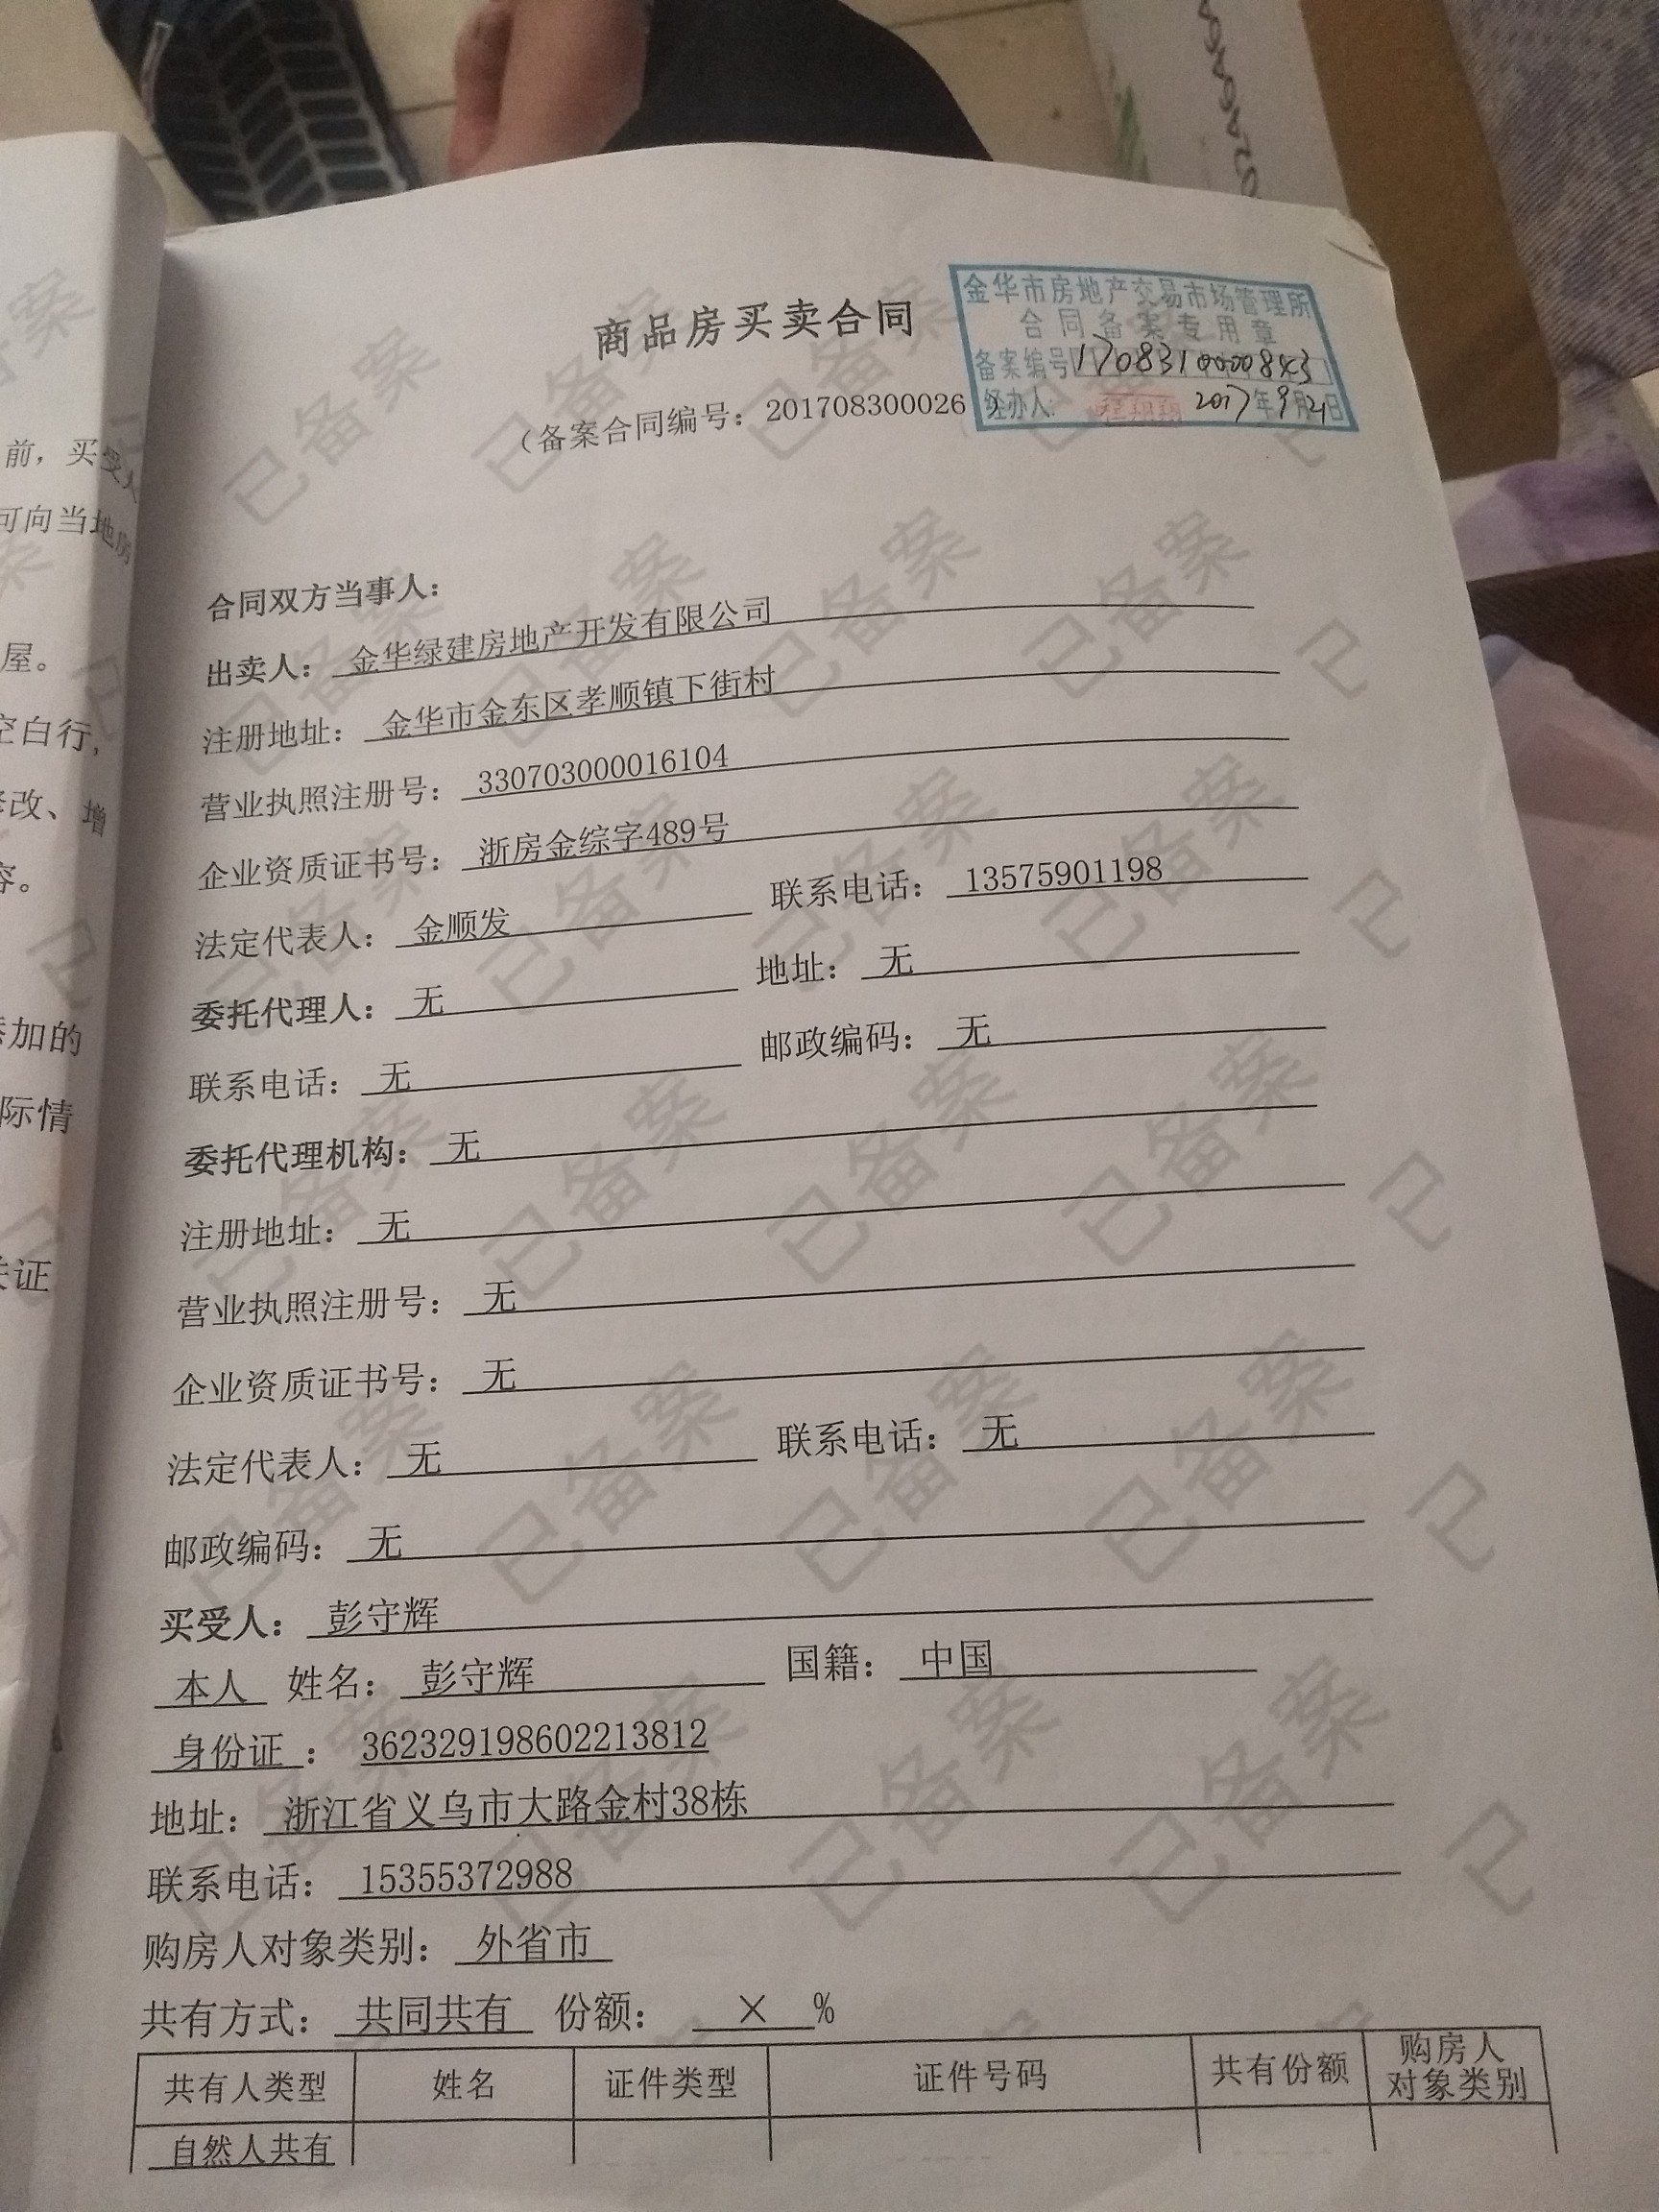 商品房买卖合同
(备案合同编号：201708300026
金华市房地产交易市场管理所
合同备案专用章
备案编号 1708310000843
经办人: 2017年9月21日
合同双方当事人：
出卖人： 金华绿建房地产开发有限公司
注册地址： 金华市金东区孝顺镇下街村
营业执照注册号： 330703000016104
企业资质证书号： 浙房金综字489号
法定代表人： 金顺发 联系电话： 13575901198
委托代理人： 无 地址： 无
联系电话： 无 邮政编码： 无
委托代理机构： 无
注册地址： 无
营业执照注册号： 无
企业资质证书号： 无
法定代表人： 无 联系电话： 无
邮政编码： 无
买受人： 彭守辉
本人 姓名： 彭守辉 国籍： 中国
身份证 ： 362329198602213812
地址： 浙江省义乌市大路金村38栋
联系电话： 15355372988
购房人对象类别： 外省市
共有方式： 共同共有 份额： × %
共有人类型 姓名 证件类型 证件号码 共有份额 购房人对象类别
自然人共有
前，买受人
可向当地房
屋。
空白行，
修改、增
容。
添加的
际情
关证
已备案